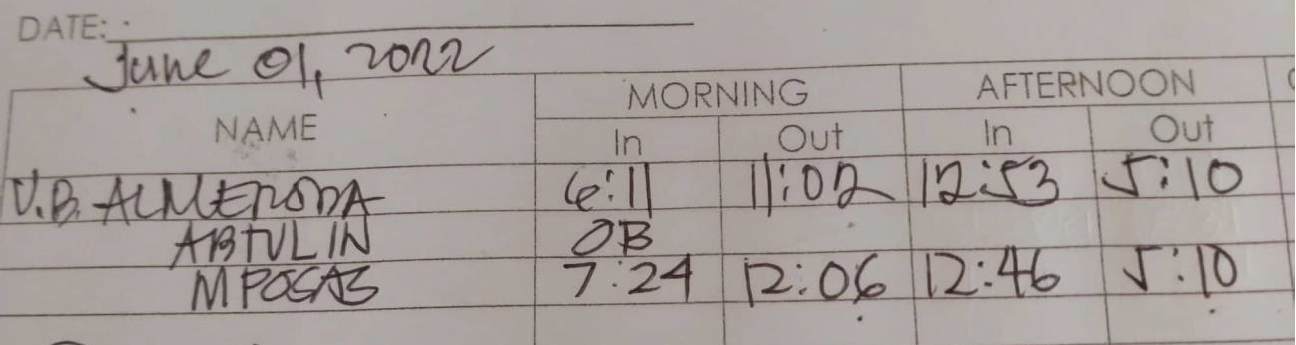 DATE:
June 01, 2022
NAME MORNING AFTERNOON
In Out In Out
V.B. ALMERODA 6:11 11:02 12:53 5:10
ABTULIN OB
MPOSAS 7:24 12:06 12:46 5:10